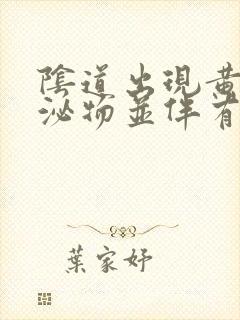 陰道出現黃
泌物並伴有
葉家妤